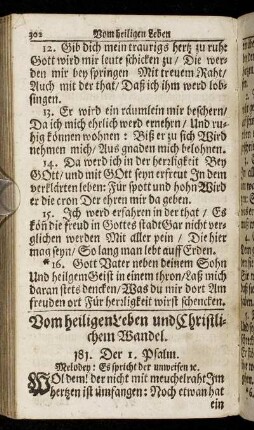 302 Vom heiligen Leben
12. Gib dich mein traurigs hertz zu ruhe
Gott wird mir leute schicken zu / Die wer-
den mir bey springen Mit treuem Raht/
Auch mit der that/ Daß ich ihm werd lob-
singen.
13. Er wird ein räumlein mir beschern/
Da ich mich ehrlich werd ernehrn / Und ru-
hig können wohnen : Biß er zu sich Wird
nehmen mich/ Aus gnaden mich belohnen.
14. Da werd ich in der herzligkeit Bey
GOtt/ und mit GOtt seyn erfreut In dem
verklärten leben: Für spott und hohn Wird
er die cron Der ehren mir da geben.
15. Jch werd erfahren in der that / Es
kön die freud in Gottes stadt Gar nicht ver-
glichen werden Mit aller pein / Die hier
mag seyn/ So lang man lebt auff Erden.
*16. Gott Vater neben deinem Sohn
Und heilgem Geist in einem thron/ Laß mich
daran stets dencken/ Was du mir dort Am
freuden ort Für herzligkeit wirst schencken.
Vom heiligen Leben und Christli-
chem Wandel.
383. Der 1. Psalm.
Melodey: Es spricht der unweisen ꝛc.
WOl dem! der nicht mit meuchelraht Jm
hertzen ist ümfangen: Noch etwan hat
ein